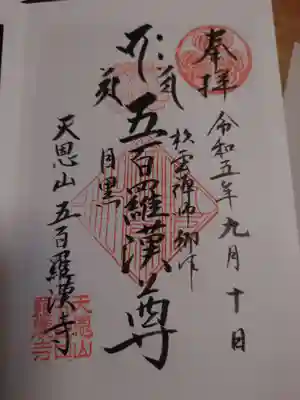 奉拝
令和五年九月十日
松雲禅師御作
五百羅漢尊
目黒
天恩山 五百羅漢寺
天恩山